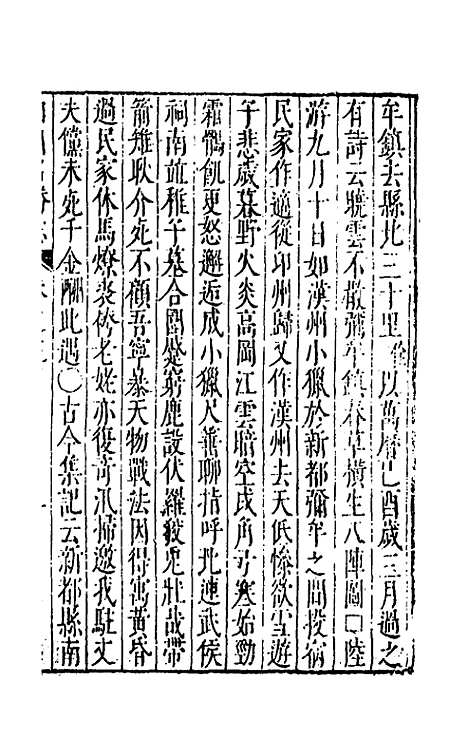 牟鎮去縣北三十里餘以萬曆己酉歲三月過之
有詩云曉雲不散彌牟鎮春草橫生八陣圖□陸
游九月十日如漢州小獵於新都彌牟之間投宿
民家作適從卭州歸又作漢州去天低慘欲雪遊
子悲歲暮野火炎高岡江雲暗空戍角弓寒始勁
霜鶻飢更怒邂逅成小獵尺箠聊指呼北連武侯
祠南竝稚子墓合圍蹙窮鹿設伏羅狡兔壯哉帶
箭雉耿介死不顧吾寧暴天物戰法因得寓黃昏
過民家休馬燎裳袴老姥亦復竒汛掃邀我駐丈
夫儻未死千金酬此遇〇古今集記云新都縣南